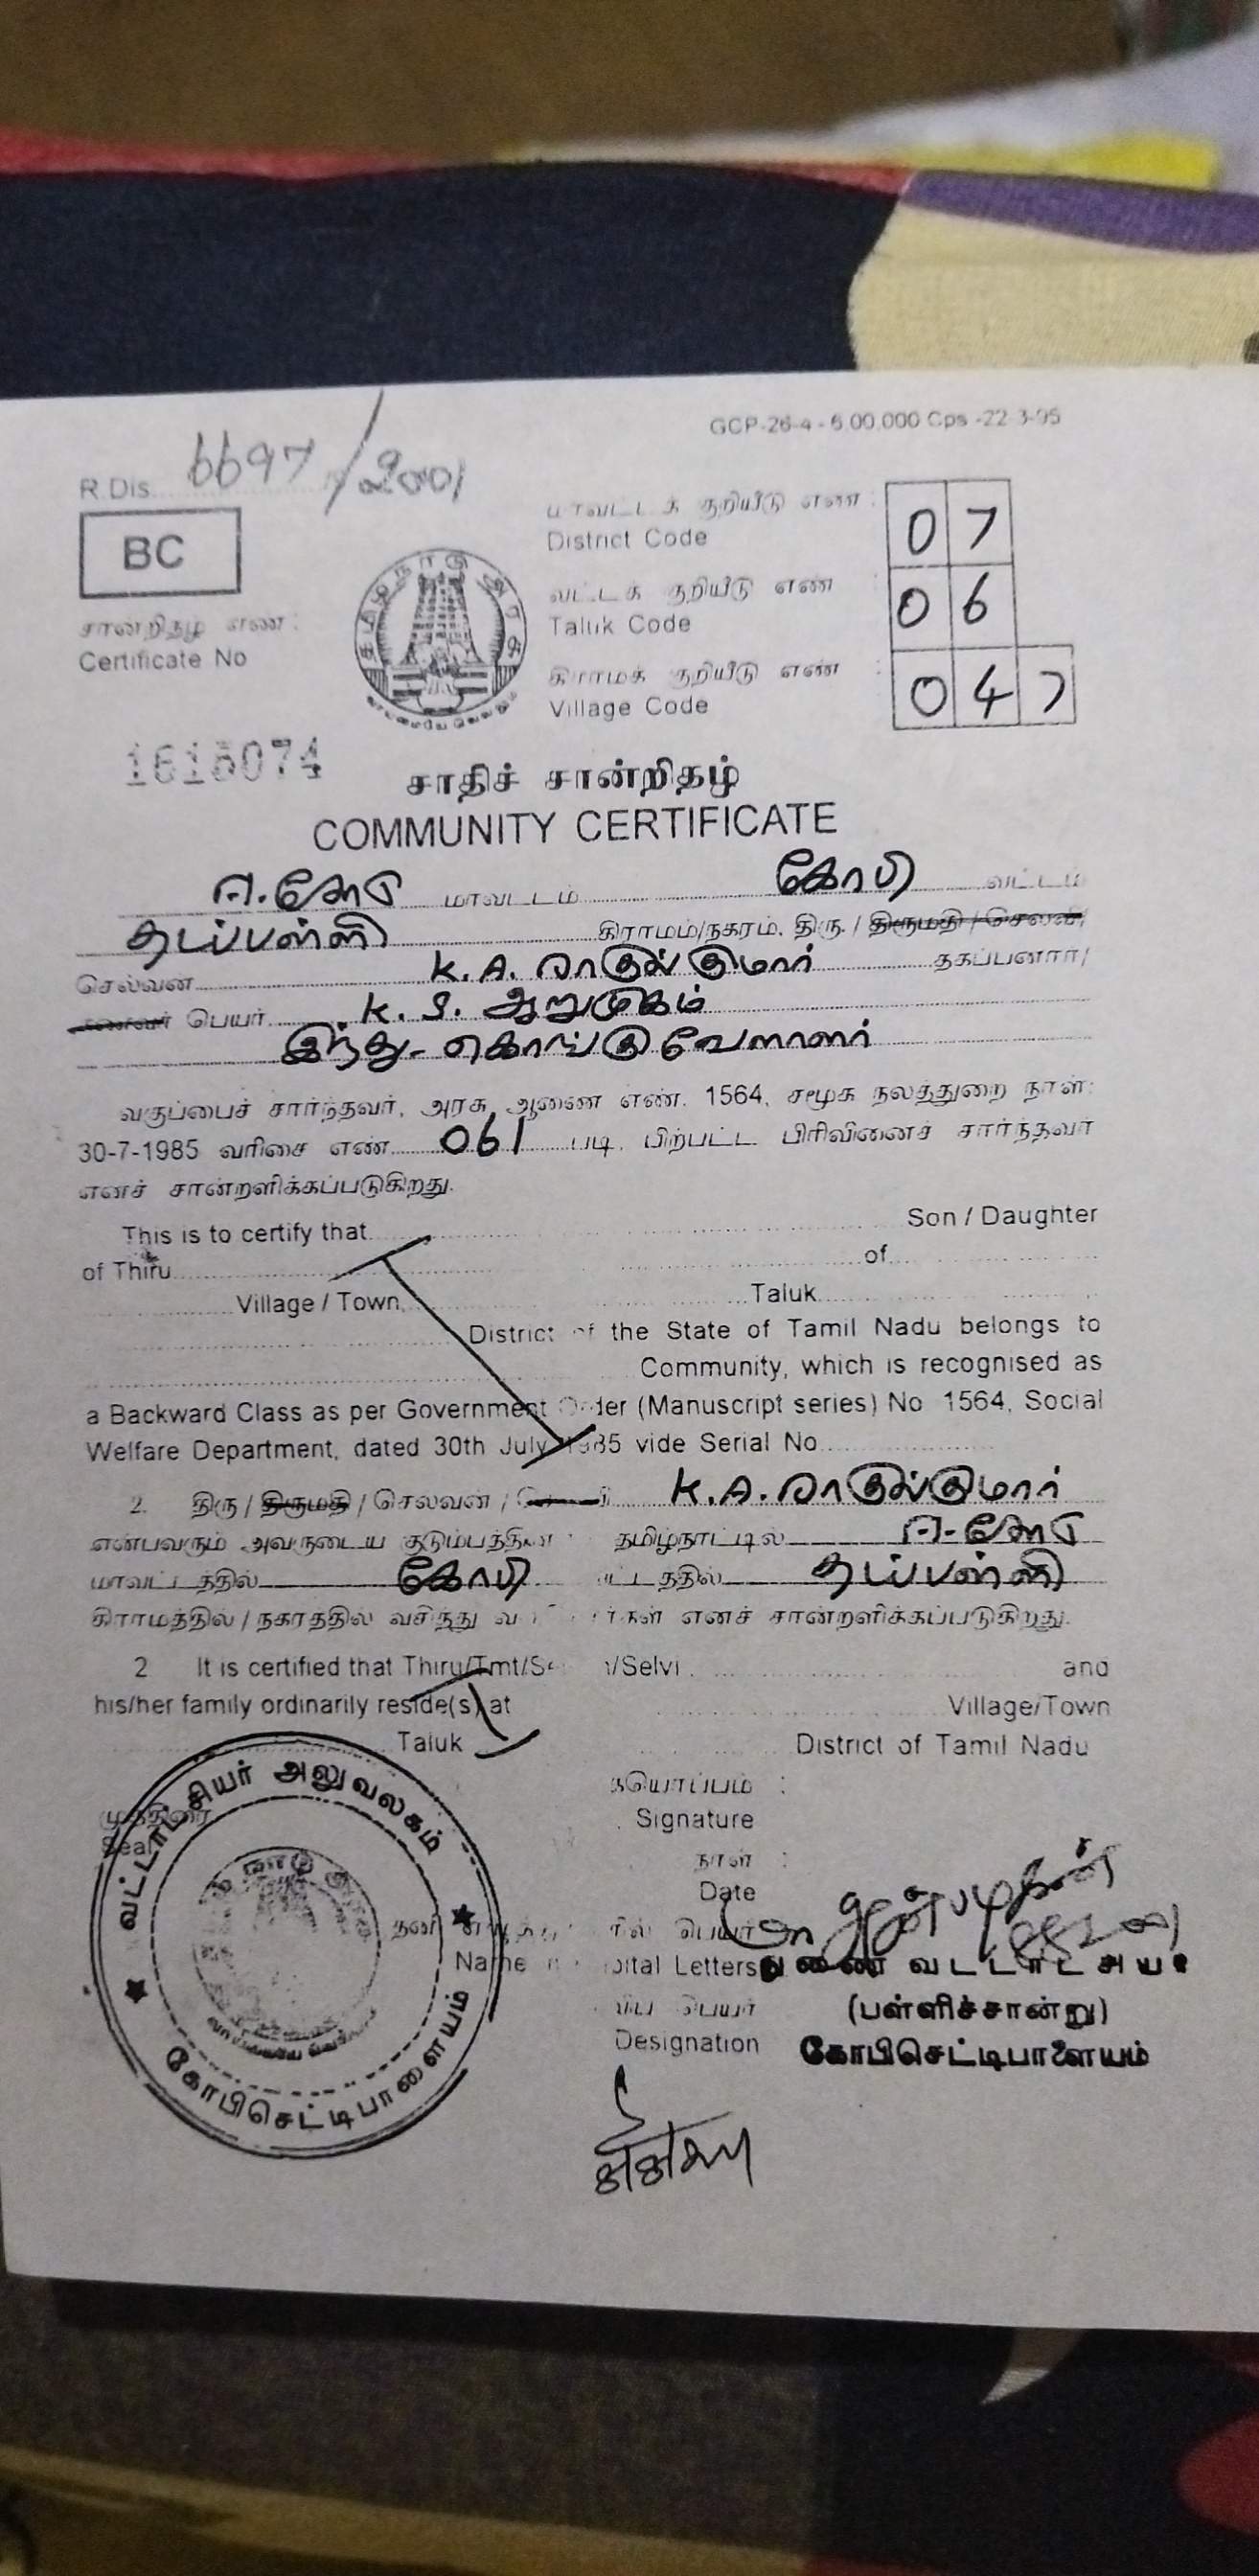 GCP-26-4 - 6,00,000 Cps -22-3-95
R.Dis. 6697/2001
BC
மாவட்டக் குறியீடு எண் :
District Code
07
வட்டக் குறியீடு எண் :
Taluk Code
06
கிராமக் குறியீடு எண் :
Village Code
047
சான்றிதழ் எண் :
Certificate No
1615074
சாதிச் சான்றிதழ்
COMMUNITY CERTIFICATE
ஈரோடு மாவட்டம் கோபி வட்டம்
தடப்பள்ளி கிராமம்/நகரம். திரு. / திருமதி / செல்வி/
செல்வன் K. A. ராகுல் குமார் தகப்பனார்/
கணவர் பெயர் K. S. ஆறுமுகம்
இந்து - கொங்கு வேளாளர்
வகுப்பைச் சார்ந்தவர், அரசு ஆணை எண். 1564, சமூக நலத்துறை நாள்:
30-7-1985 வரிசை எண் 061 படி, பிற்பட்ட பிரிவினைச் சார்ந்தவர்
எனச் சான்றளிக்கப்படுகிறது.
This is to certify that Son / Daughter
of Thiru of
Village / Town Taluk
District of the State of Tamil Nadu belongs to
Community, which is recognised as
a Backward Class as per Government Order (Manuscript series) No 1564, Social
Welfare Department, dated 30th July 1985 vide Serial No
2. திரு / திருமதி / செல்வன் / K.A. ராகுல்குமார்
என்பவரும் அவருடைய குடும்பத்தின தமிழ்நாட்டில் ஈரோடு
மாவட்டத்தில் கோபி வட்டத்தில் தடப்பள்ளி
கிராமத்தில் / நகரத்தில் வசித்து எனச் சான்றளிக்கப்படுகிறது.
2 It is certified that Thiru/Tmt/ /Selvi and
his/her family ordinarily reside(s) at Village/Town
Taluk District of Tamil Nadu
கையொப்பம் :
Signature
முத்திரை
Seal
நாள் :
Date
பெயர்
Name in Capital Letters
துணை வட்டாட்சியர்
பெயர்
(பள்ளிச்சான்று)
Designation
கோபிசெட்டிபாளையம்
வட்டாட்சியர் அலுவலகம்
கோபிசெட்டிபாளையம்